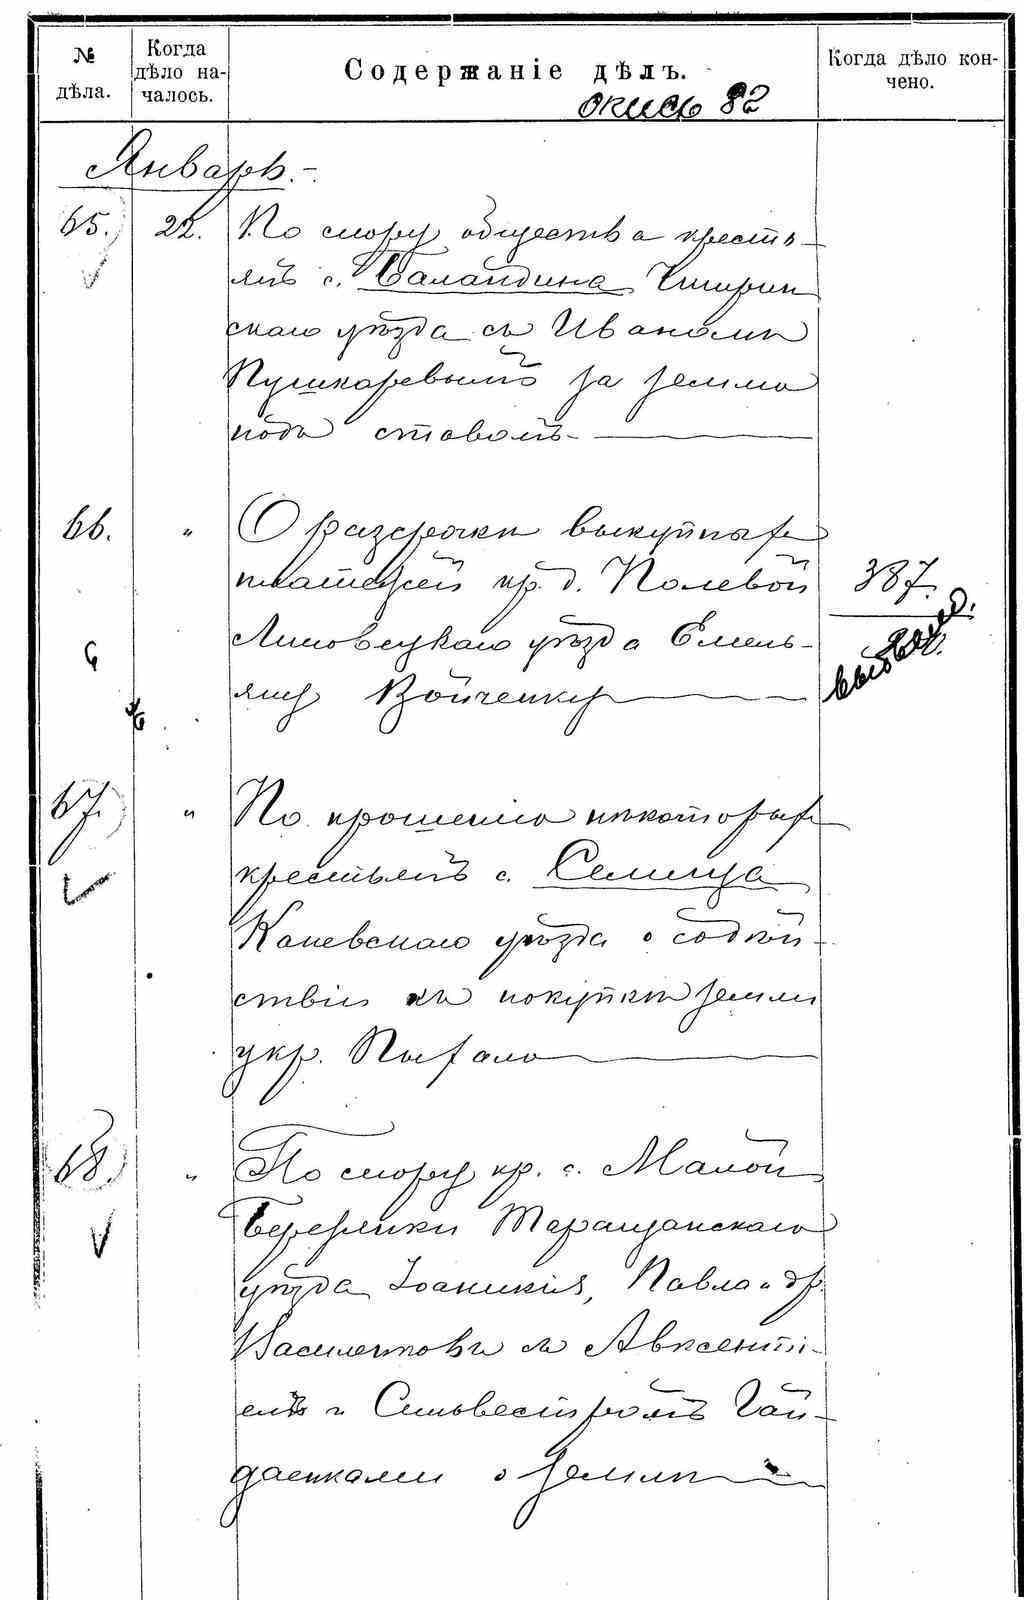 № дѣла.
Когда дѣло началось.
Содержаніе дѣлъ.
Когда дѣло кончено.
опись 82
Январь.
65. 22. По спору общества крестьянъ с. Баландина Чигирин
скаго уѣзда съ Иваномъ
Пушкаревымъ за землю
подъ ставомъ
66. " О разсрочкѣ выкупныхъ
платежей кр. д. Полевой
Липовецкаго уѣзда Емель-
яну Войченку
387.
выбыло.
67. " По прошенію нѣкоторыхъ
крестьянъ с. Селища
Каневскаго уѣзда о содѣй-
ствіи къ покупкѣ земли
у кр. Пыхало
68. " По спору кр. с. Малой
Березянки Таращанскаго
уѣзда Іоаникія, Павла и др.
Василенковъ съ Авксенті-
емъ и Сильвестромъ Гай-
даенками о землѣ